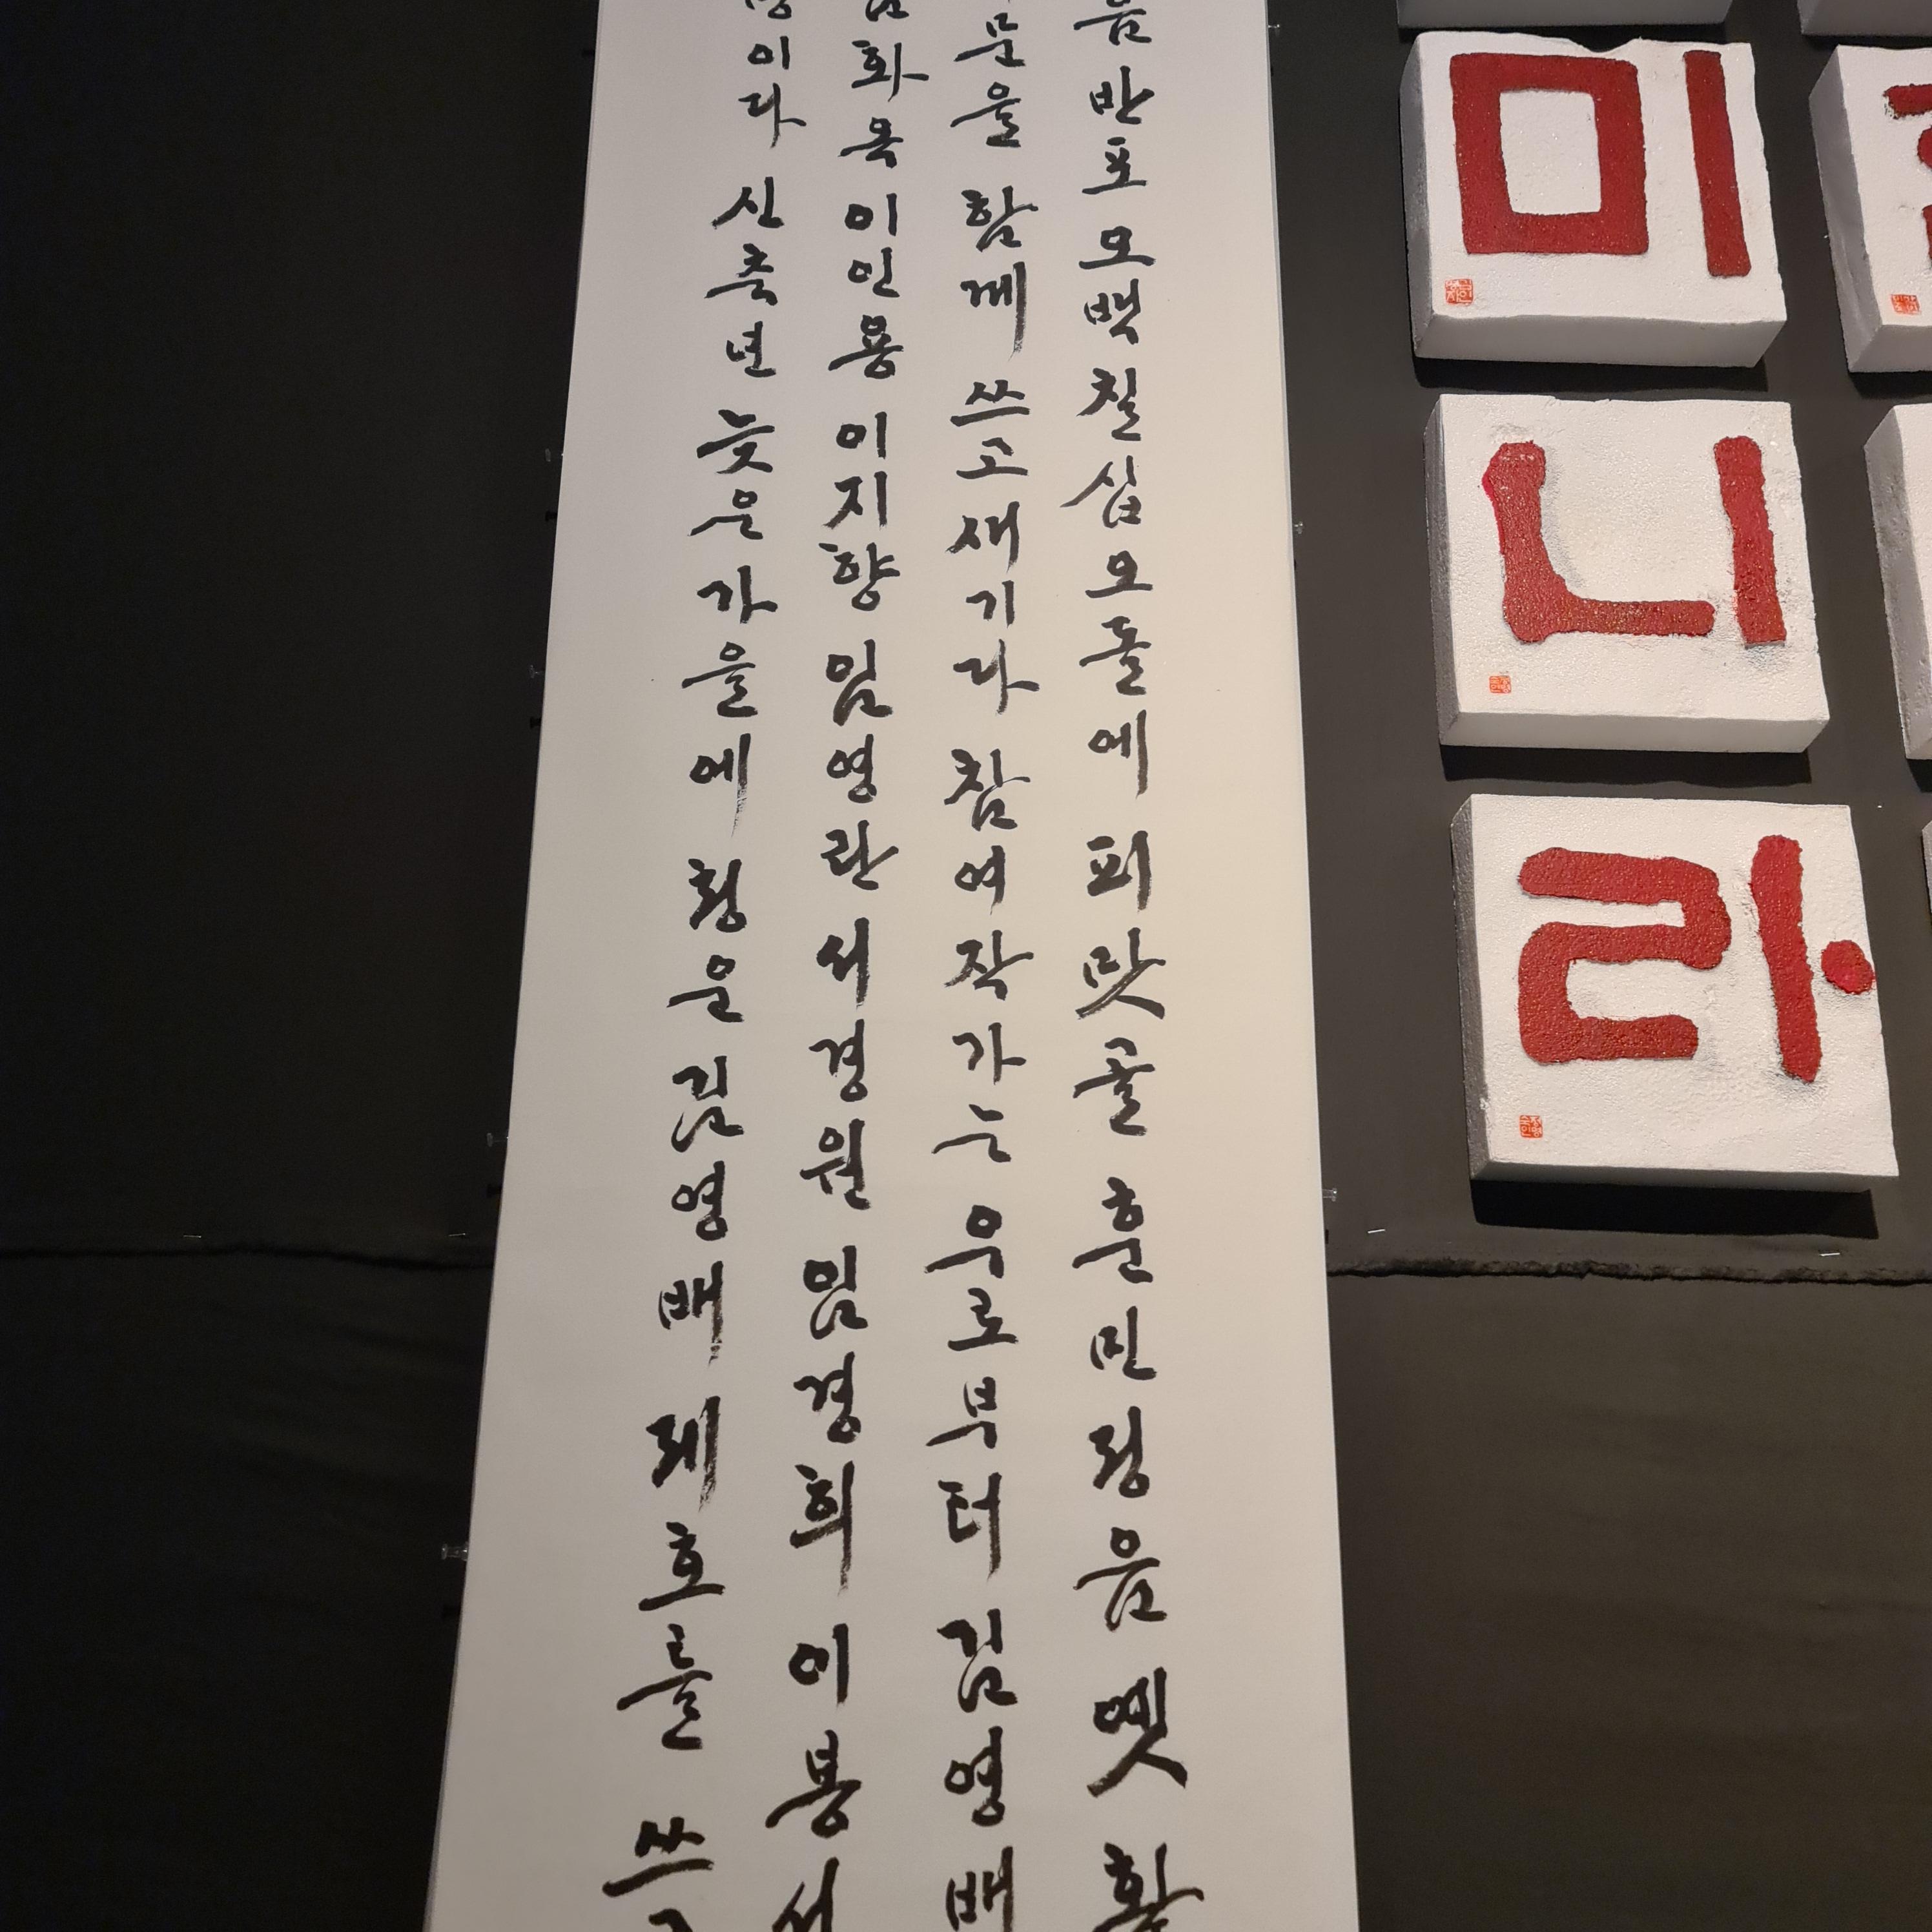 음 반포 오백 칠십 오 돌에 피맛골 훈민정음 옛
문을 함께 쓰고 새기다 참여 작가는 우로부터 김영배
화옥 이인용 이지향 임영란 서경원 임경희 이봉
이다 신축년 늦은 가을에 청운 김영배 제호를 쓰
미
니
라